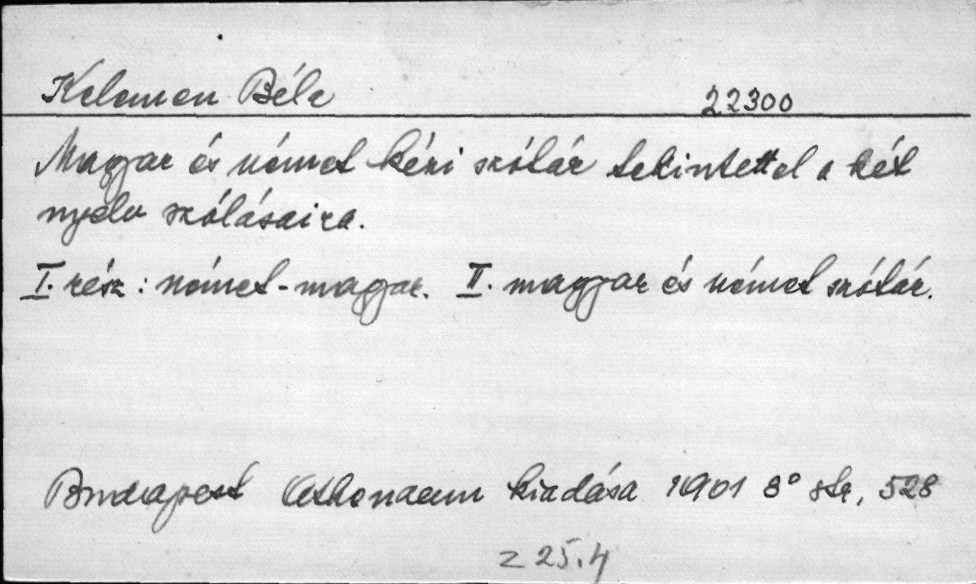 Kelemen Béla 22300
Magyar és német kézi szótár tekintettel a két
nyelv szólásaira.
I. rész: német-magyar. II. magyar és német szótár.
Budapest Athenaeum kiadása 1901 8°, 528
Z 25.4